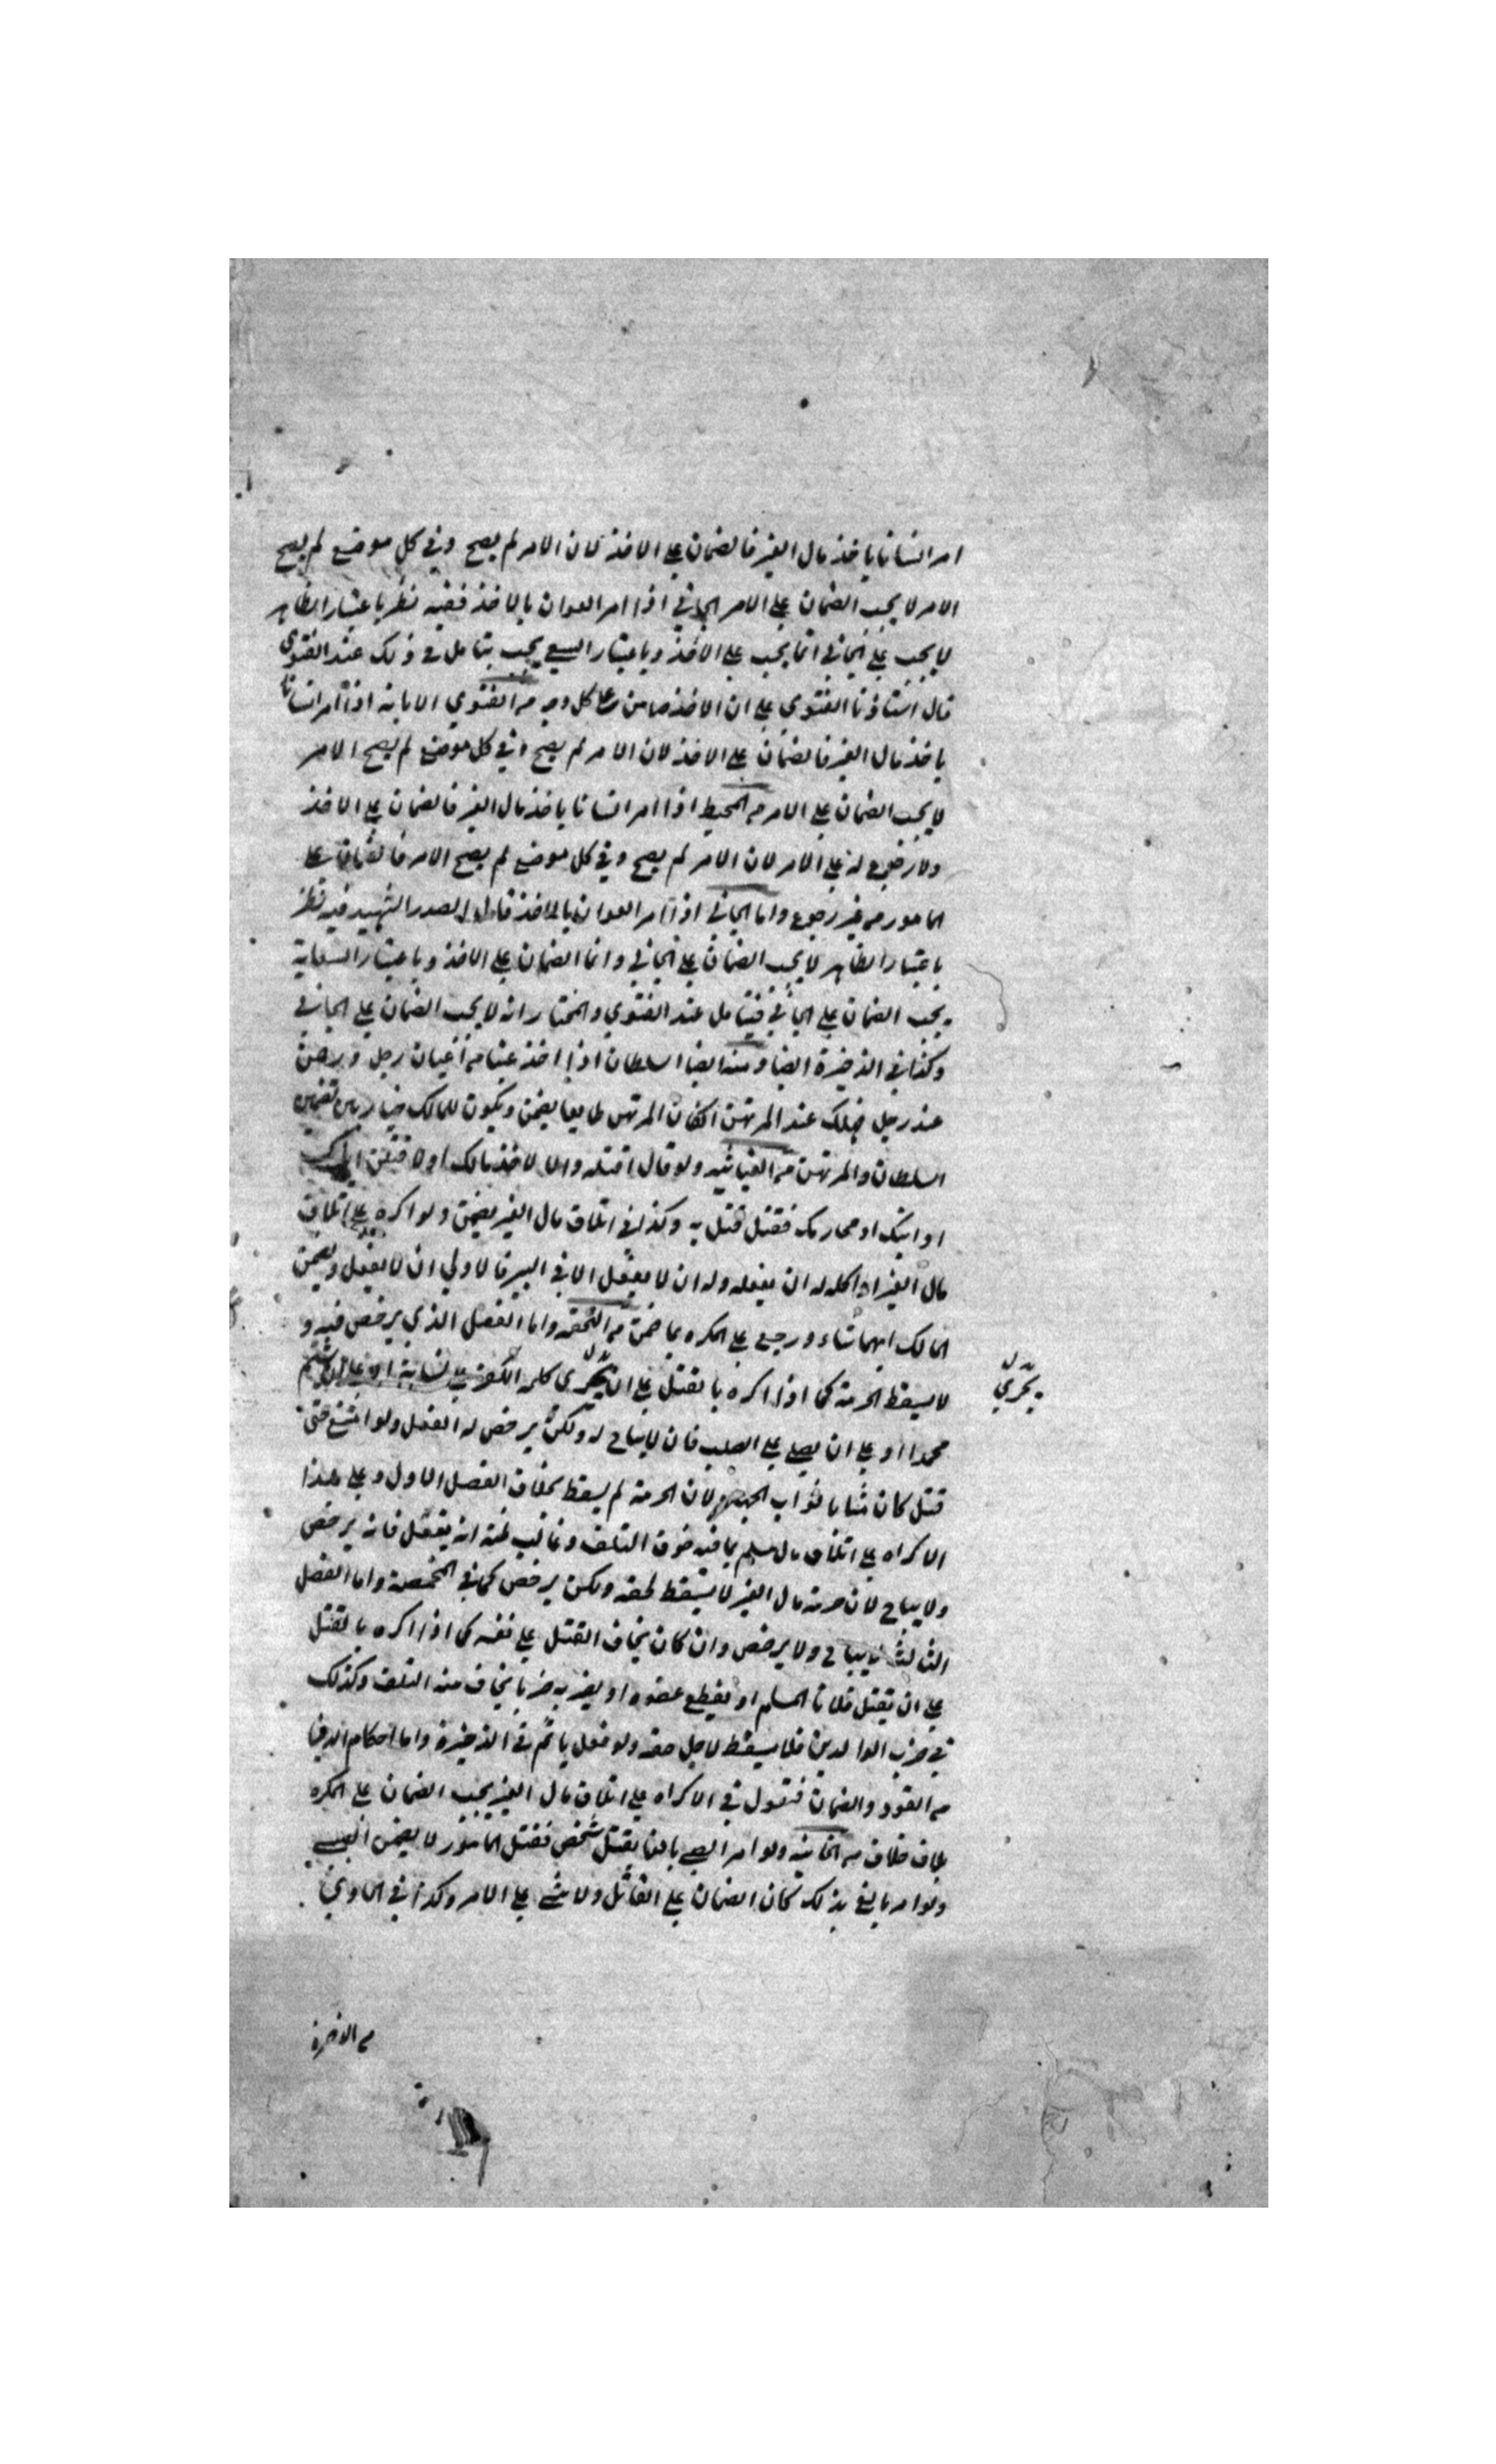 امر انسانا ياخذ مال الغير فالضمان على الاخذ لان الامر لم يصح وفي كل موضع لم يصح
الامر لا يجب الضمان على الامر الجاني اذا امر العوان بالاخذ ففيه نظر باعتبار الظاهر
لا يجب على الجاني انما يجب على الاخذ وباعتبار السعي يجب يتامل في ذلك عند الفتوى
قال استاذنا الفتوي على ان الاخذ ضامن على كل وجه من الفتوي الامانة اذا امر انسانا
ياخذ مال الغير فالضمان على الاخذ لان الامر لم يصح وفي كل موضع لم يصح الامر
لا يجب الضمان على الامر من المحيط اذا امر انسانا ياخذ مال الغير فالضمان على الاخذ
ولا رجوع له على الامر لان الامر لم يصح وفي كل موضع لم يصح الامر فالضمان على
المامور من غير رجوع واما الجاني اذا امر العوان بالاخذ قال الصدر الشهيد فيه نظر
باعتبار الظاهر لا يجب الضمان على الجاني وانما الضمان على الاخذ وباعتبار السعاية
يجب الضمان على الجاني فيتامل عند الفتوي والمختار انه لا يجب الضمان على الجاني
وكذا في الذخيرة ايضا ومنه ايضا السلطان اذا اخذ عينا من اعيان رجل ورهن
عند رجل فهلك عند المرتهن انكان المرتهن طايعا يضمن ويكون للمالك خيار بين تضمين
السلطان والمرتهن من الغياثيه ولو قال اقتله والا لاخذ مالك او لا قتلن
او ابنك او محارمك فقتل قتل به وكذا في اتلاف مال الغير يضمن ولو اكره على اتلاف
مال الغير او اكله له ان يفعله وله ان لا يفعل الا في اليسير فالاولي ان لا يفعل ويضمن
المالك ايهما شاء ورجع على المكره بما ضمن من التحفه واما الفصل الذي يرخص فيه و
لا يسقط الحرمة كما اذا اكره بالقتل على ان يجري كلمه الكفر على لسانه او على ان يشتم
محمدا او على ان يصلي على الصليب فان لا يباح له ولكن يرخص له الفعل ولو امتنع حتى
قتل كان مثابا ثواب الجهاد لان الحرمة لم يسقط بخلاف الفصل الاول وعلى هذا
الاكراه على اتلاف مال مسلم بما فيه خوف التلف وغالب ظنه انه يفعل فانه يرخص
ولا يباح لان حرمة مال الغير لا يسقط لحقه ولكن يرخص كما في المخمصة واما الفصل
الثالث لا يباح ولا يرخص وان كان يخاف القتل على نفسه كما اذا اكره بالقتل
على ان يقتل فلانا المسلم او يقطع عضوه او يضربه ضربا يخاف منه التلف وكذلك
في ضرب الوالدين فلا يسقط لاجل حقه ولو فعل ياثم في الذخيرة واما احكام الدنيا
من القود والضمان فنقول في الاكراه على اتلاف مال الغير يجب الضمان على المكره
بلا خلاف من الخانيه ولو امر الصبي بالغا بقتل شخص فقتل المامور لا يضمن الصبي
ولو امر بالغ بذلك كان الضمان على القاتل ولا شيء على الامر وكذا في الحاوي
بدل
يجري
من الاخرة